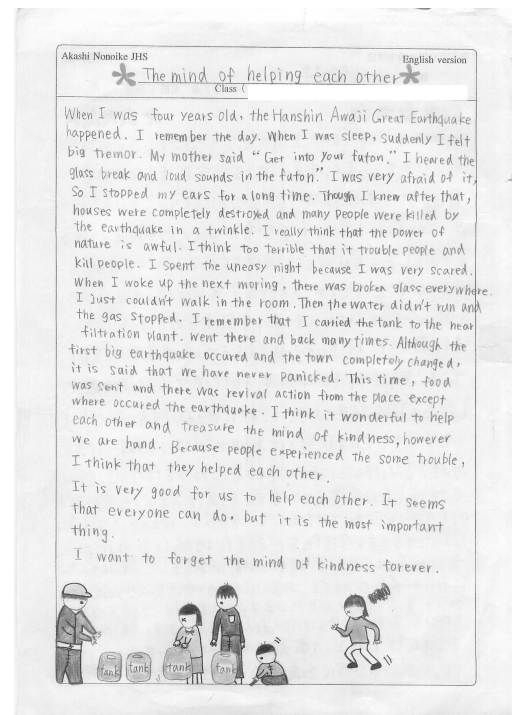 Akashi Nonoike JHS
English version
The mind of helping each other
Class (
When I was four years old, the Hanshin Awaji Great Earthquake
happened. I remember the day. When I was sleep, suddenly I felt
big tremor. My mother said "Get into your futon." I heared the
glass break and loud sounds in the futon." I was very afraid of it,
So I stopped my ears for a long time. Though I knew after that,
houses were completely destroyed and many people were killed by
the earthquake in a twinkle. I really think that the power of
nature is awful. I think too terrible that it trouble people and
kill people. I spent the uneasy night because I was very scared.
When I woke up the next moring, there was broken glass everywhere.
I just couldn't walk in the room. Then the water didn't run and
the gas stopped. I remember that I carried the tank to the near
filtration plant. went there and back many times. Although the
first big earthquake occured and the town completely changed,
it is said that we have never panicked. This time, food
was sent und there was revival action from the place except
where occured the earthquake. I think it wonderful to help
each other and treasure the mind of kindness, however
we are hand. Because people experienced the some trouble,
I think that they helped each other.
It is very good for us to help each other. It seems
that everyone can do, but it is the most important
thing.
I want to forget the mind of kindness forever.
tank
tank
tank
tank